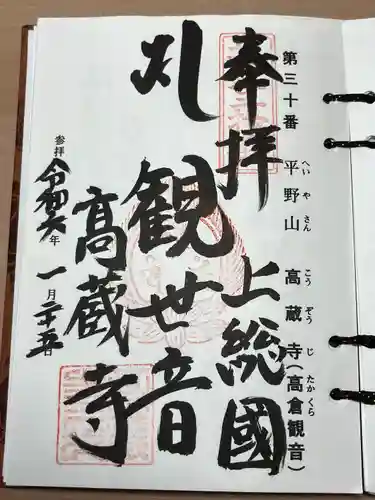 第三十番 平野山 高蔵寺(高倉観音)
へいやさん こうぞうじ たかくら
奉拝 上総國
観世音
髙蔵寺
参拝 令和六年 一月二十五日